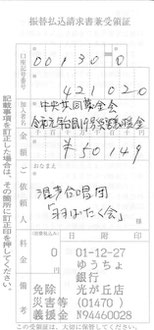 振替払込請求書兼受領証
口座記号番号
00130 0
421020
加入者名
中央共同募金会
令和元年台風19号災害義援金
金額
¥50149
ご依頼人
おなまえ
混声合唱団
「羽ばたく会」
料金
(消費税込み)
0
備考
日附印
01-12-27
ゆうちょ
銀行
免除 光が丘店
災害等 (01470)
義援金 N94460028
記載事項を訂正した場合は、その箇所に訂正印を押してください。